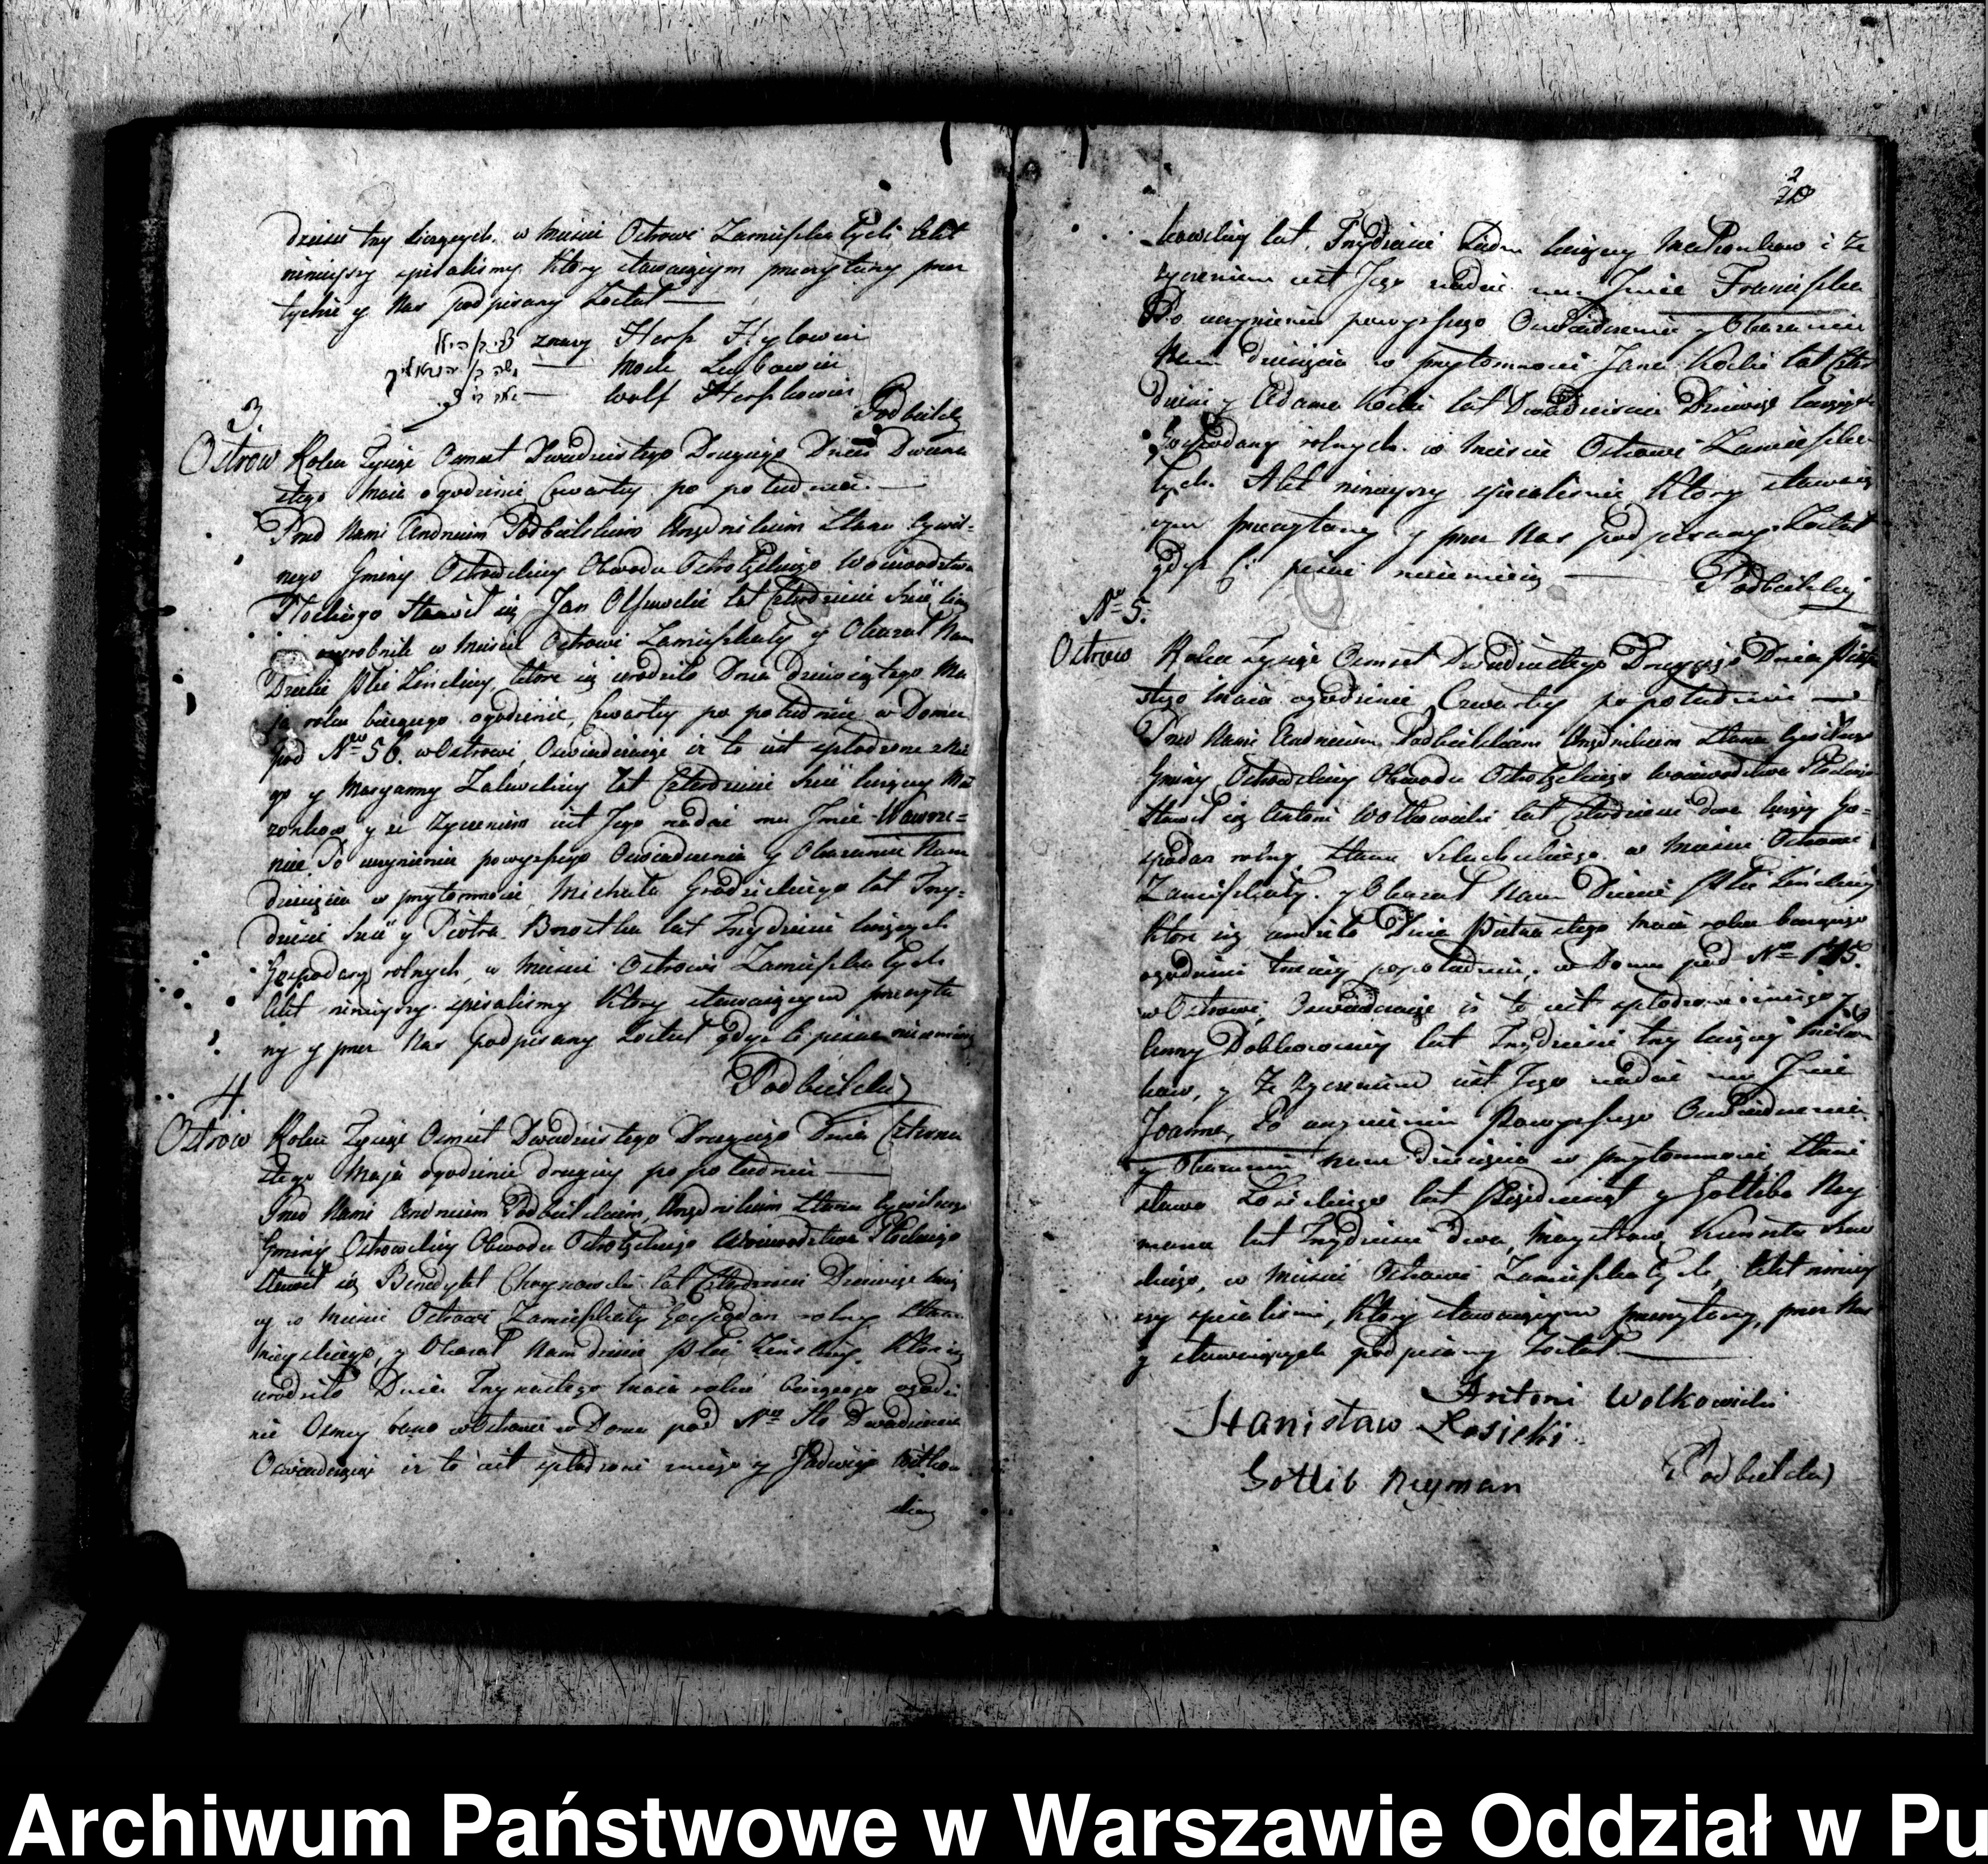 dzieści trzy liczących w mieście Ostrowi Zamieszkałych Akt
ninieyszy spisaliśmy który stawaiącym przeczytany przez
tychże y Nas podpisany został —
znaczy Herszk Hylowicz
Mosk Leybowicz
Wolf Herszkowicz
Podbielski
3.
Ostrow Roku Tysiąc Osmset Dwudziestego Drugiego Dnia Dwuna
stego Maia o godzinie Czwartey po południu. —
Przed Nami Andrzeiem Podbielskim Urzędnikiem Stanu Cywil-
nego Gminy Ostrowskiey Obwodu Ostrołęckiego Woiewodztwa
Płockiego stawił się Jan Olszewski lat Czterdzieści sześć
wyrobnik w mieście Ostrowi Zamieszkały y Okazał Nam
Dziecie płci żeńskiey, które się urodziło Dnia dziewiątego Ma
ja roku bieżącego o godzinie Czwartey po południu w Domu
pod Nro 56. w Ostrowi, Oswiadczaiąc iż to iest spłodzone z Nie
go y Maryanny Zalewskiey lat Czterdzieści sześć liczącey Mał
zonków y że życzeniem iest Jego nadać mu Jmie Wawrze-
nie Po uczynieniu powyższego Oswiadczenia y Okazaniu Nam
dziecięcia w przytomności Michała Grodzickiego lat Trzy-
dzieści sześć y Piotra Brostka lat Trzydzieści liczących
Gospodarzy rolnych, w mieście Ostrowi Zamieszkałych
Akt ninieyszy spisaliśmy który stawaiącym przeczyta
ny y przez Nas podpisany został gdyż Ci pisać nieumieią
Podbielski
4
Ostrów Roku Tysiąc Osmset Dwudziestego Drugiego Dnia Czterna
stego Maja o godzinie drugiey po południu —
Przed Nami Andrzeiem Podbielskim, Urzędnikiem Stanu Cywilnego
Gminy Ostrowskiey Obwodu Ostrołęckiego Woiewodztwa Płockiego
stawił się Benedykt Chrzanowski lat Czterdzieści Dziewięć licz
ący w mieście Ostrowi Zamieszkały Gospodarz rolny stanu
mieyskiego, y Okazał Nam dziecie płci żeńskiey, które się
urodziło Dnia Trzynastego Maia roku bieżącego o godzi
nie Osmey rano w Ostrowi w Domu pod Nro Sto Dwadzieścia
Oswiadczaiąc iż to iest spłodzone z niego y Jadwigi Witko
skiey
2
kowskiey lat Trzydzieści siedm liczącey Małżonków i że
życzeniem iest Jego nadać mu Jmie Franciszka
Po uczynieniu powyższego Oswiadczenia y Okazaniu
Nam dziecięcia w przytomności Jana Kocki lat Czter
dzieści y Adama Kocki lat Dwadzieścia Dziewięć liczących
Gospodarzy rolnych w mieście Ostrowi Zamieszka
łych Akt ninieyszy spisaliśmy Który stawaią
cym przeczytany y przez Nas podpisany został
gdyż Ci pisać nieumieią — Podbielski
No 5.
Ostrow Roku Tysiąc Osmset Dwudziestego Drugiego Dnia Pietna
stego Maia o godzinie Czwartey po południu —
Przed Nami Andrzeiem Podbielskim Urzędnikiem Stanu Cywilnego
Gminy Ostrowskiey Obwodu Ostrołęckiego Woiewodztwa Płockiego
Stawił się Antoni Wołkowicki lat Czterdzieści dwa liczący Go-
spodarz rolny, stanu Szlacheckiego w mieście Ostrowi
Zamieszkały. y Okazał Nam Dziecie płci żeńskiey
które się urodziło Dnia Pietnastego Maia roku bieżącego
o godzinie trzeciey po południu. w Domu pod Nro
w Ostrowi, Oswiadczaiąc iż to iest spłodzone z niego y
Anny Dobkowskiey lat Trzydzieści trzy liczącey Małżon
ków, y że życzeniem iest Jego nadać mu Jmie
Joanna, Po uczynieniu Powyższego Oswiadczenia
y Okazaniu Nam dziecięcia w przytomności Stani
sława Łosickiego lat y Gottliba Ney
mana lat Trzydzieści dwa, Maystrow Kunsztu
skiego, w mieście Ostrowi Zamieszkałych, Akt niniey
szy spisaliśmy, Który stawaiącym przeczytany, przez Nas
y stawaiących podpisany został —
Antoni Wolkowicki
Stanisław Łosicki
Gottlib Neyman Podbielski
Archiwum Państwowe w Warszawie Oddział w Pu